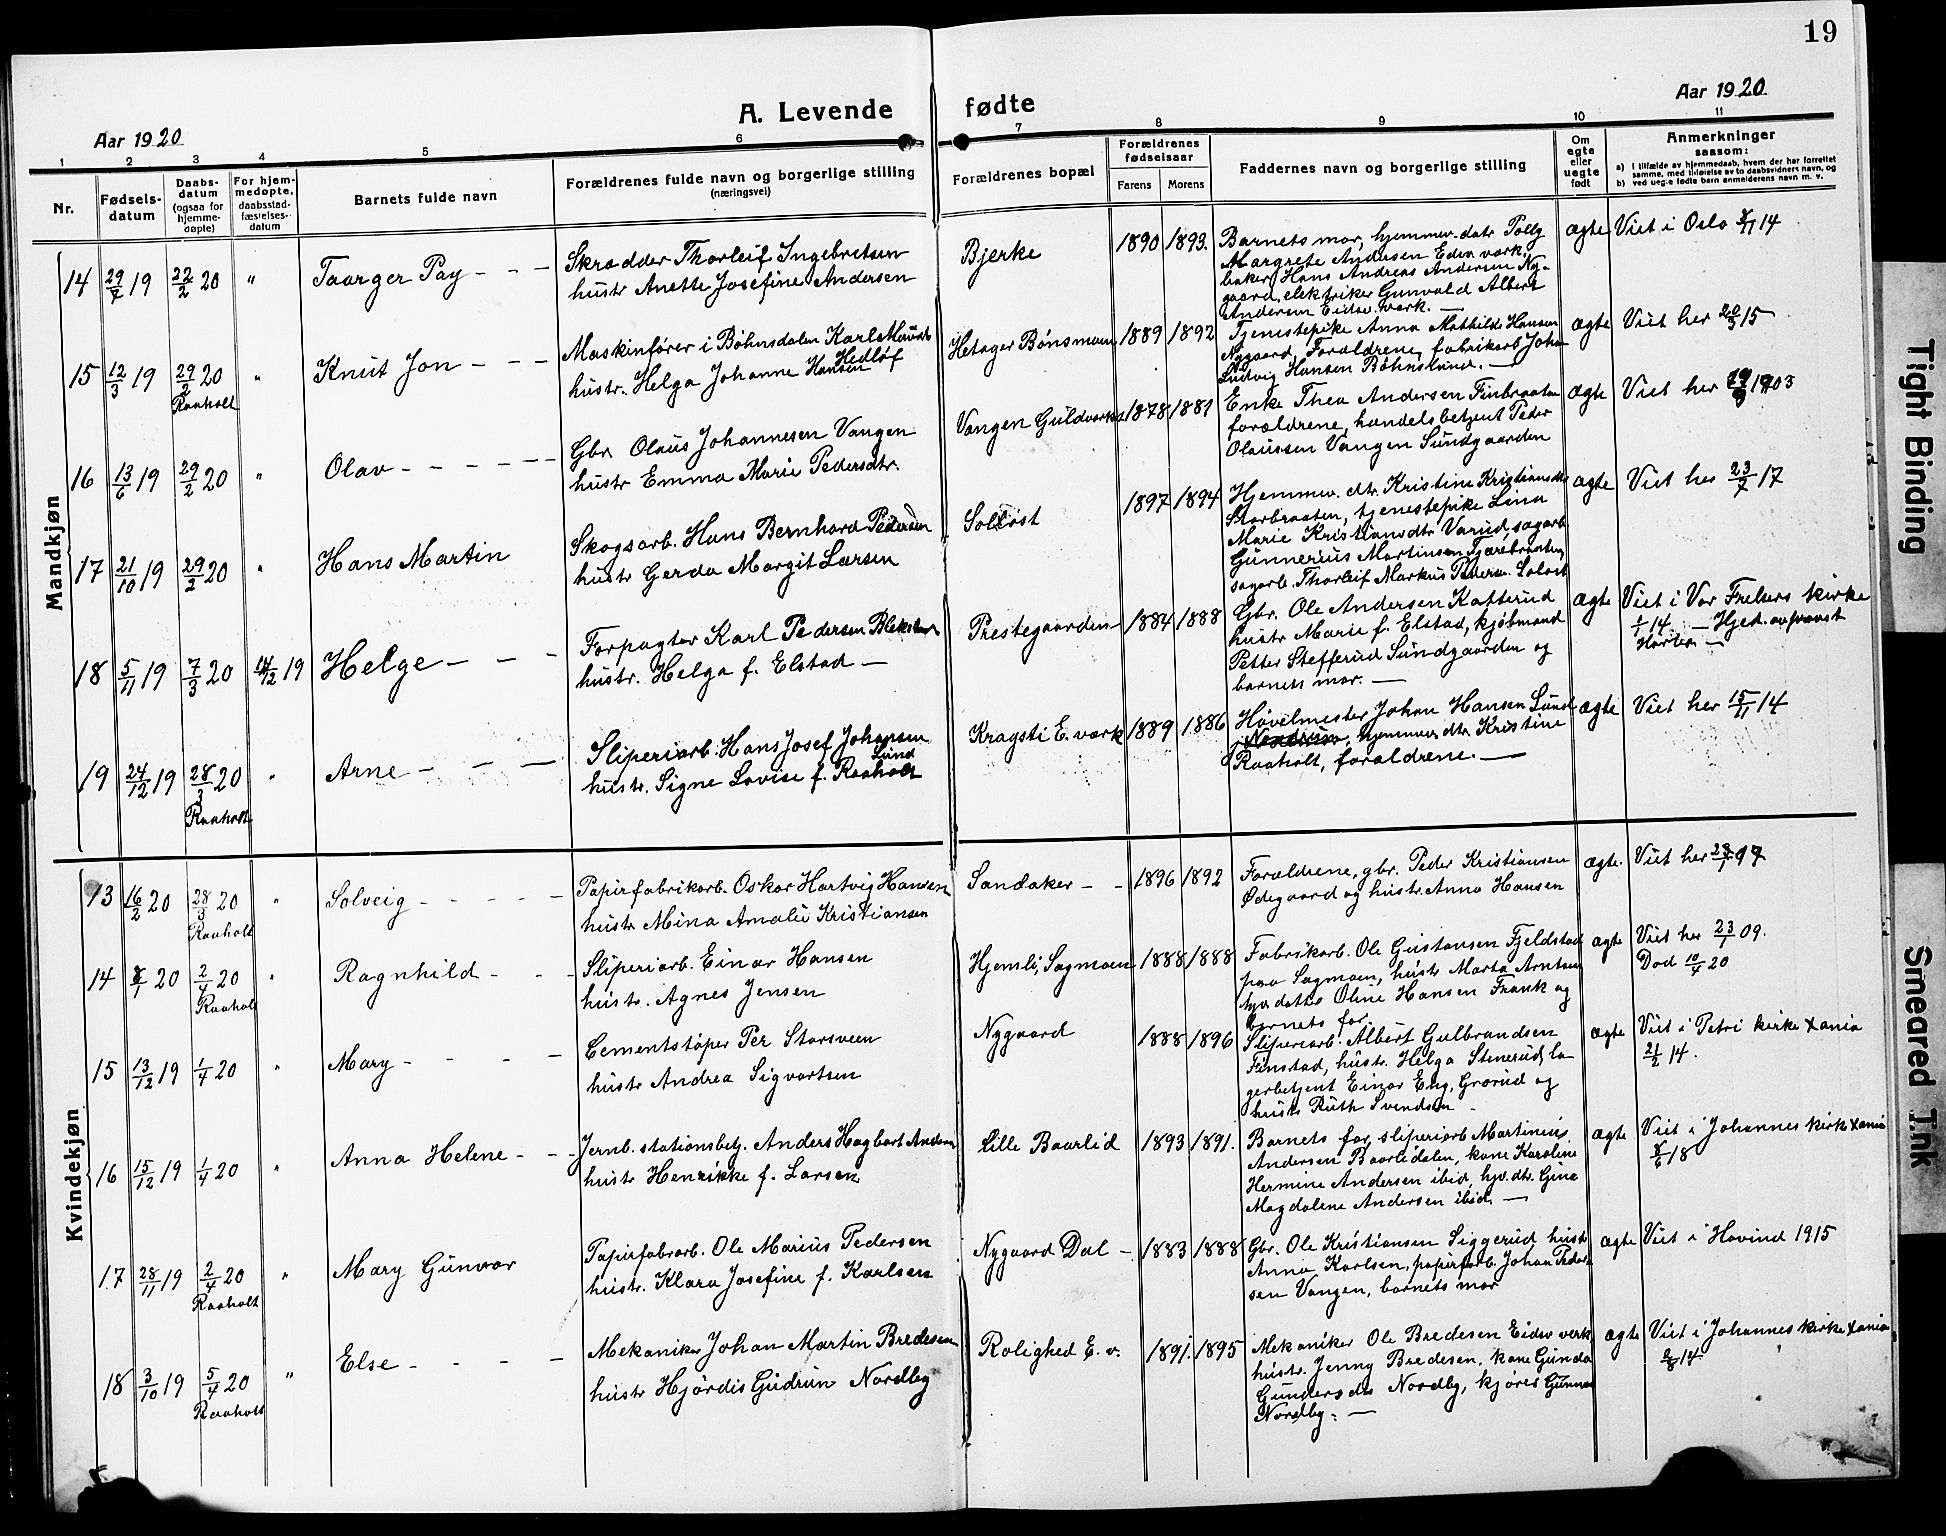 19
A. Levende fødte
Aar 1920
Aar 1920
1 2 3 4 5 6 7 8 9 10 11
Nr.
Fødsels-
datum
Daabs-
datum
(ogsaa for
hjemme-
døpte)
For hjem-
medøpte,
daabsstad-
fæstelses-
datum
Barnets fulde navn
Forældrenes fulde navn og borgerlige stilling
(næringsvei)
Forældrenes bopæl
Forældrenes
fødselsaar
Farens
Morens
Faddernes navn og borgerlige stilling
Om
egte
eller
uegte
født
Anmerkninger
saasom:
a) i tilfælde av hjemmedaab, hvem der har forrettet
samme, med tilføielse av to daabsvidners navn, og
b) ved uegte fødte barn anmelderens navn m. v.
Mandkjøn
14 29/7 19 22/2 20 " Taarger Pay - - -
Skrædder Thorleif Ingebretsen
hustr Anette Josefine Andersen
Bjerke 1890 1893.
Barnets mor, hjemmev. datr Polly
Margrete Andersen Edsv værk,
baker Hans Andreas Andersen Ny-
gaard, elektriker Gunvald Albert
Andersen Eidsv. værk. -
ægte Viet i Oslo 8/11 14
15 12/3 19 29/2 20 " Knut Jon - - -
Raaholt
Maskinfører i Bøhnsdalen Karl
Hedløf
hustr. Helga Johanne Hansen
Hetager Bønsmoen 1889 1892
Tjenestepike Anna Mathilde Hansen
Nygaard, Forældrene, fabrikarb Johan
Ludvig Hansen Bøhnslunna. -
ægte Viet her 20/3 15
16 13/6 19 29/2 20 " Olav - - - - - -
Gbr Olaus Johannesen Vangen
hustr Emma Marie Pedersdtr.
Vangen Guldværket 1878 1881
Enke Thea Andersen Finbraaten
forældrene, handelsbetjent Peder
Olaussen Vangen Sundgaarden
ægte Viet her 1903
17 21/10 19 29/2 20 " Hans Martin
Skogsarb. Hans Bernhard Pedersen
hustr Gerda Margit Larsen
Solløst 1897 1894
Hjemmev. dtr. Kristine Kristiansdtr
Storbraaten, tjenestepike Lina
Marie Kristiansdtr Varud, sagarb
Gunnerius Martinsen Tjærebraaten,
sagarb. Thorleif Markus Peders. Soløst
ægte Viet her 23/7 17
18 5/11 19 7/3 20 14/12 19 Helge - - -
Forpagter Karl Pedersen Blekstad
hustr. Helga f. Elstad -
Prestegaarden 1884 1888
Gbr. Ole Andersen Katterud
hustr Marie f. Elstad, kjøbmand
Petter Stefferud Sundgaarden og
barnets mor. -
ægte Viet i Vor Frelsers kirke
1/1 14 - Hjed. av provst
19 24/12 19 28/3 20 " Arne - - -
Raaholt
Sliperiarb. Hans Josef Johansen
Lund
hustr. Signe Lovise f. Raaholt
Kragsti E. værk 1889 1886
Høvelmester Johan Hansen Lund
, hjemmev. dtr Kristine
Raaholt, forældrene. -
ægte Viet her 15/11 14
Kvindekjøn
13 16/2 20 28/3 20 " Solveig - - - - -
Raaholt
Papirfabrikarb. Oskar Hartvig Hansen
hustr Mina Amalie Kristiansen
Sandaker - - 1896 1892
Forældrene, gbr. Peder Kristiansen
Ødegaard og hustr. Anna Hansen
ægte. Viet her
14 8/1 20 2/4 20 " Ragnhild - - -
Raaholt
Sliperiarb. Einar Hansen
hustr. Agnes Jensen
Hjemli, Sagmoen 1888 1888
Fabrikarb. Ole Gustavsen Fjeldstad
paa Sagmoen, hustr Marta Arntsen
hjv. datter Oline Hansen Frank og
barnets far.
ægte Viet her 23/1 09.
Død 10/4 20
15 13/12 19 1/4 20 " Mary - - - -
Cementstøper Per Storsveen
hustr Andrea Sigvartsen
Nygaard 1888 1896
Sliperiarb. Albert Gulbrandsen
Finstad, hustr. Helga Stenerud, la-
gerbetjent Einar Eng, Grorud og
hustr Ruth Svendsen -
ægte Viet i Petri kirke Xania
21/2 14.
16 15/12 19 1/4 20 " Anna Helene - - -
Jernb. stationsbetj. Anders Hagbart Andersen
hustr Henrikke f. Larsen
Lille Baarlid 1893 1891.
Barnets far, sliperiarb Martinius
Andersen Baarlidalen, kone Karoline
Hermine Andersen ibid, hjv. dtr. Gina
Magdalene Andersen ibid. -
ægte Viet i Johannes kirke Xania
8/6 18
17 28/11 19 2/4 20 " Mary Gunvor
Raaholt
Papirfabrarb. Ole Marius Pedersen
hustr. Klara Josefine f. Karlsen
Nygaard Dal - 1883 1888
Gbr. Ole Kristiansen Siggerud hustr
Anna Karlsen, papirfarb. Johan Peder-
sen Vangen, barnets mor
ægte Viet i Hovind 1915
18 3/10 19 5/4 20 " Else - - - -
Raaholt
Mekaniker Johan Martin Bredesen
hustr Hjørdis Gudrun Nordby
Rolighed E. v. 1891. 1895
Mekaniker Ole Bredesen Eidsv værk,
hustr. Jenny Bredesen, kone Gunda
Gundersdtr Nordby, kjører Gunnar
Nordby. -
ægte Viet i Johannes kirke Xania
2/8 14
Tight Binding
Smeared Ink